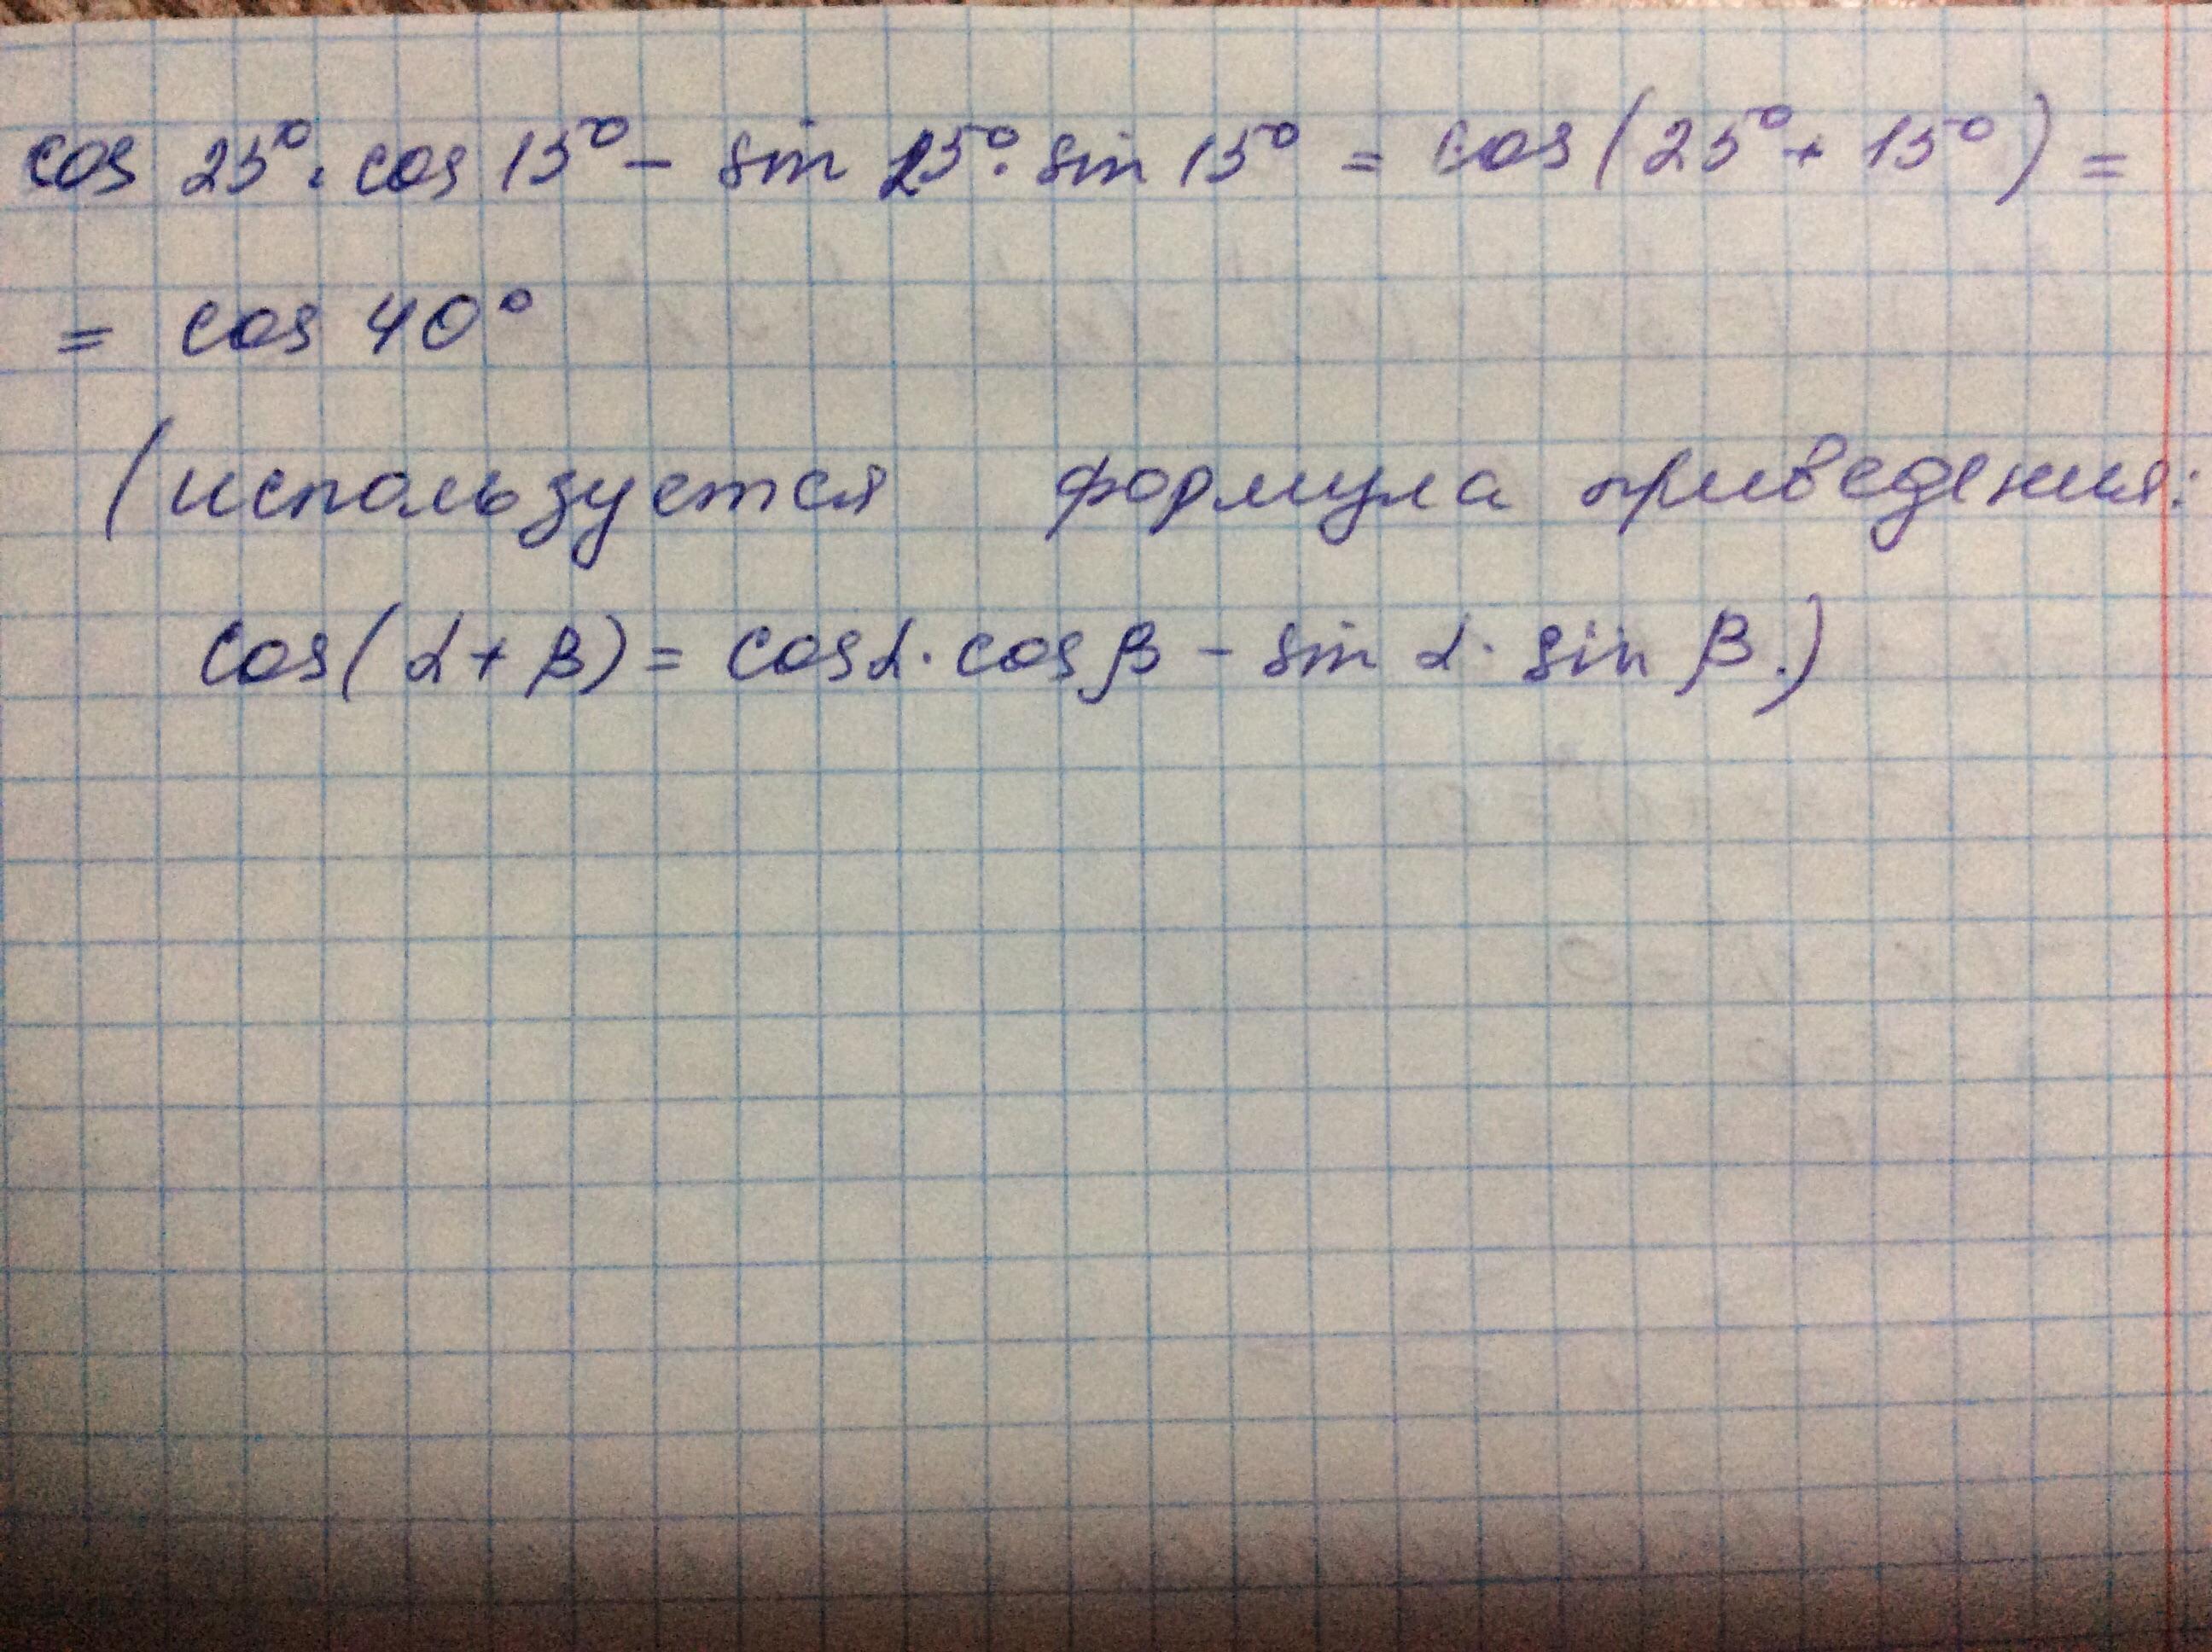 cos 25°· cos 15° - sin 25°· sin 15° = cos(25° + 15°) =
= cos 40°
(используется формула приведения:
cos(α + β) = cosα · cosβ - sin α · sin β.)